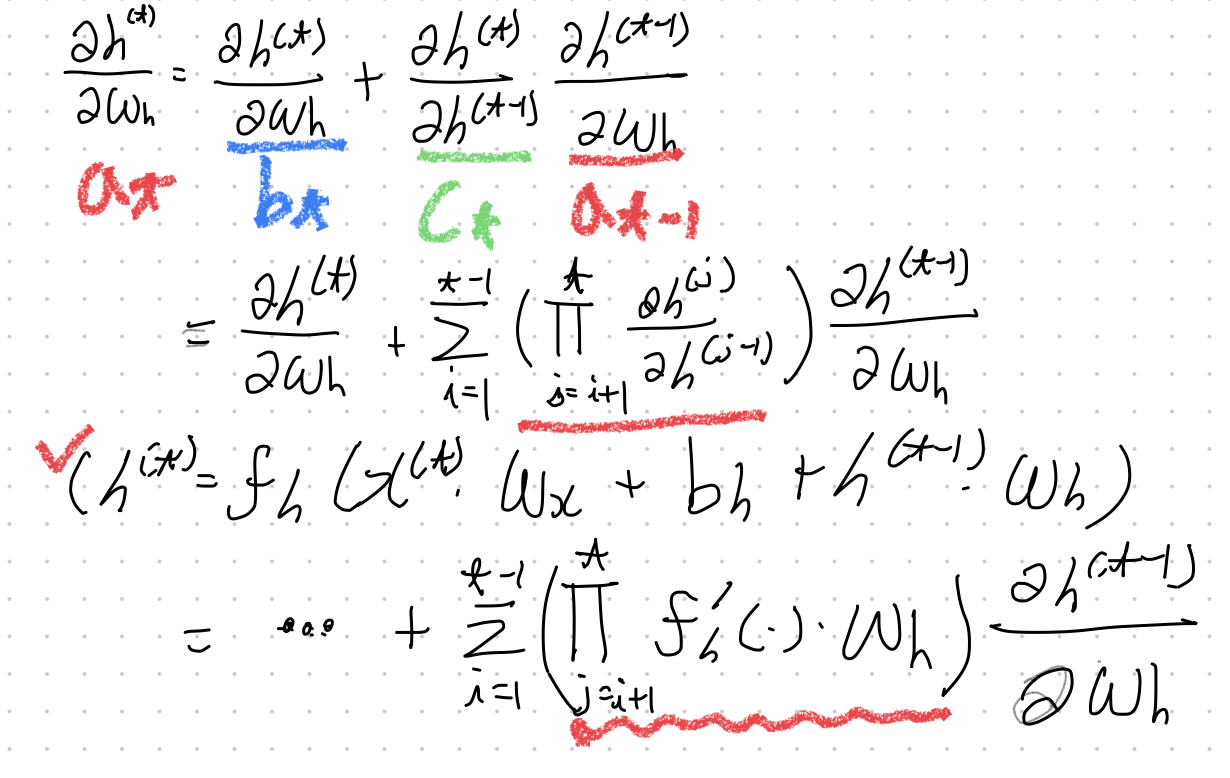 ∂h^(t)/∂W_h = ∂h^(t)/∂W_h + ∂h^(t)/∂h^(t-1) ∂h^(t-1)/∂W_h
a_t b_t c_t a_t-1
= ∂h^(t)/∂W_h + Σ_{i=1}^{t-1} ( Π_{j=i+1}^{t} ∂h^(j)/∂h^(j-1) ) ∂h^(t-1)/∂W_h
✓ (h^(t) = f_h (x^(t) · W_x + b_h + h^(t-1) · W_h)
= ... + Σ_{i=1}^{t-1} ( Π_{j=i+1}^{t} f'_h(·) · W_h ) ∂h^(t-1)/∂W_h